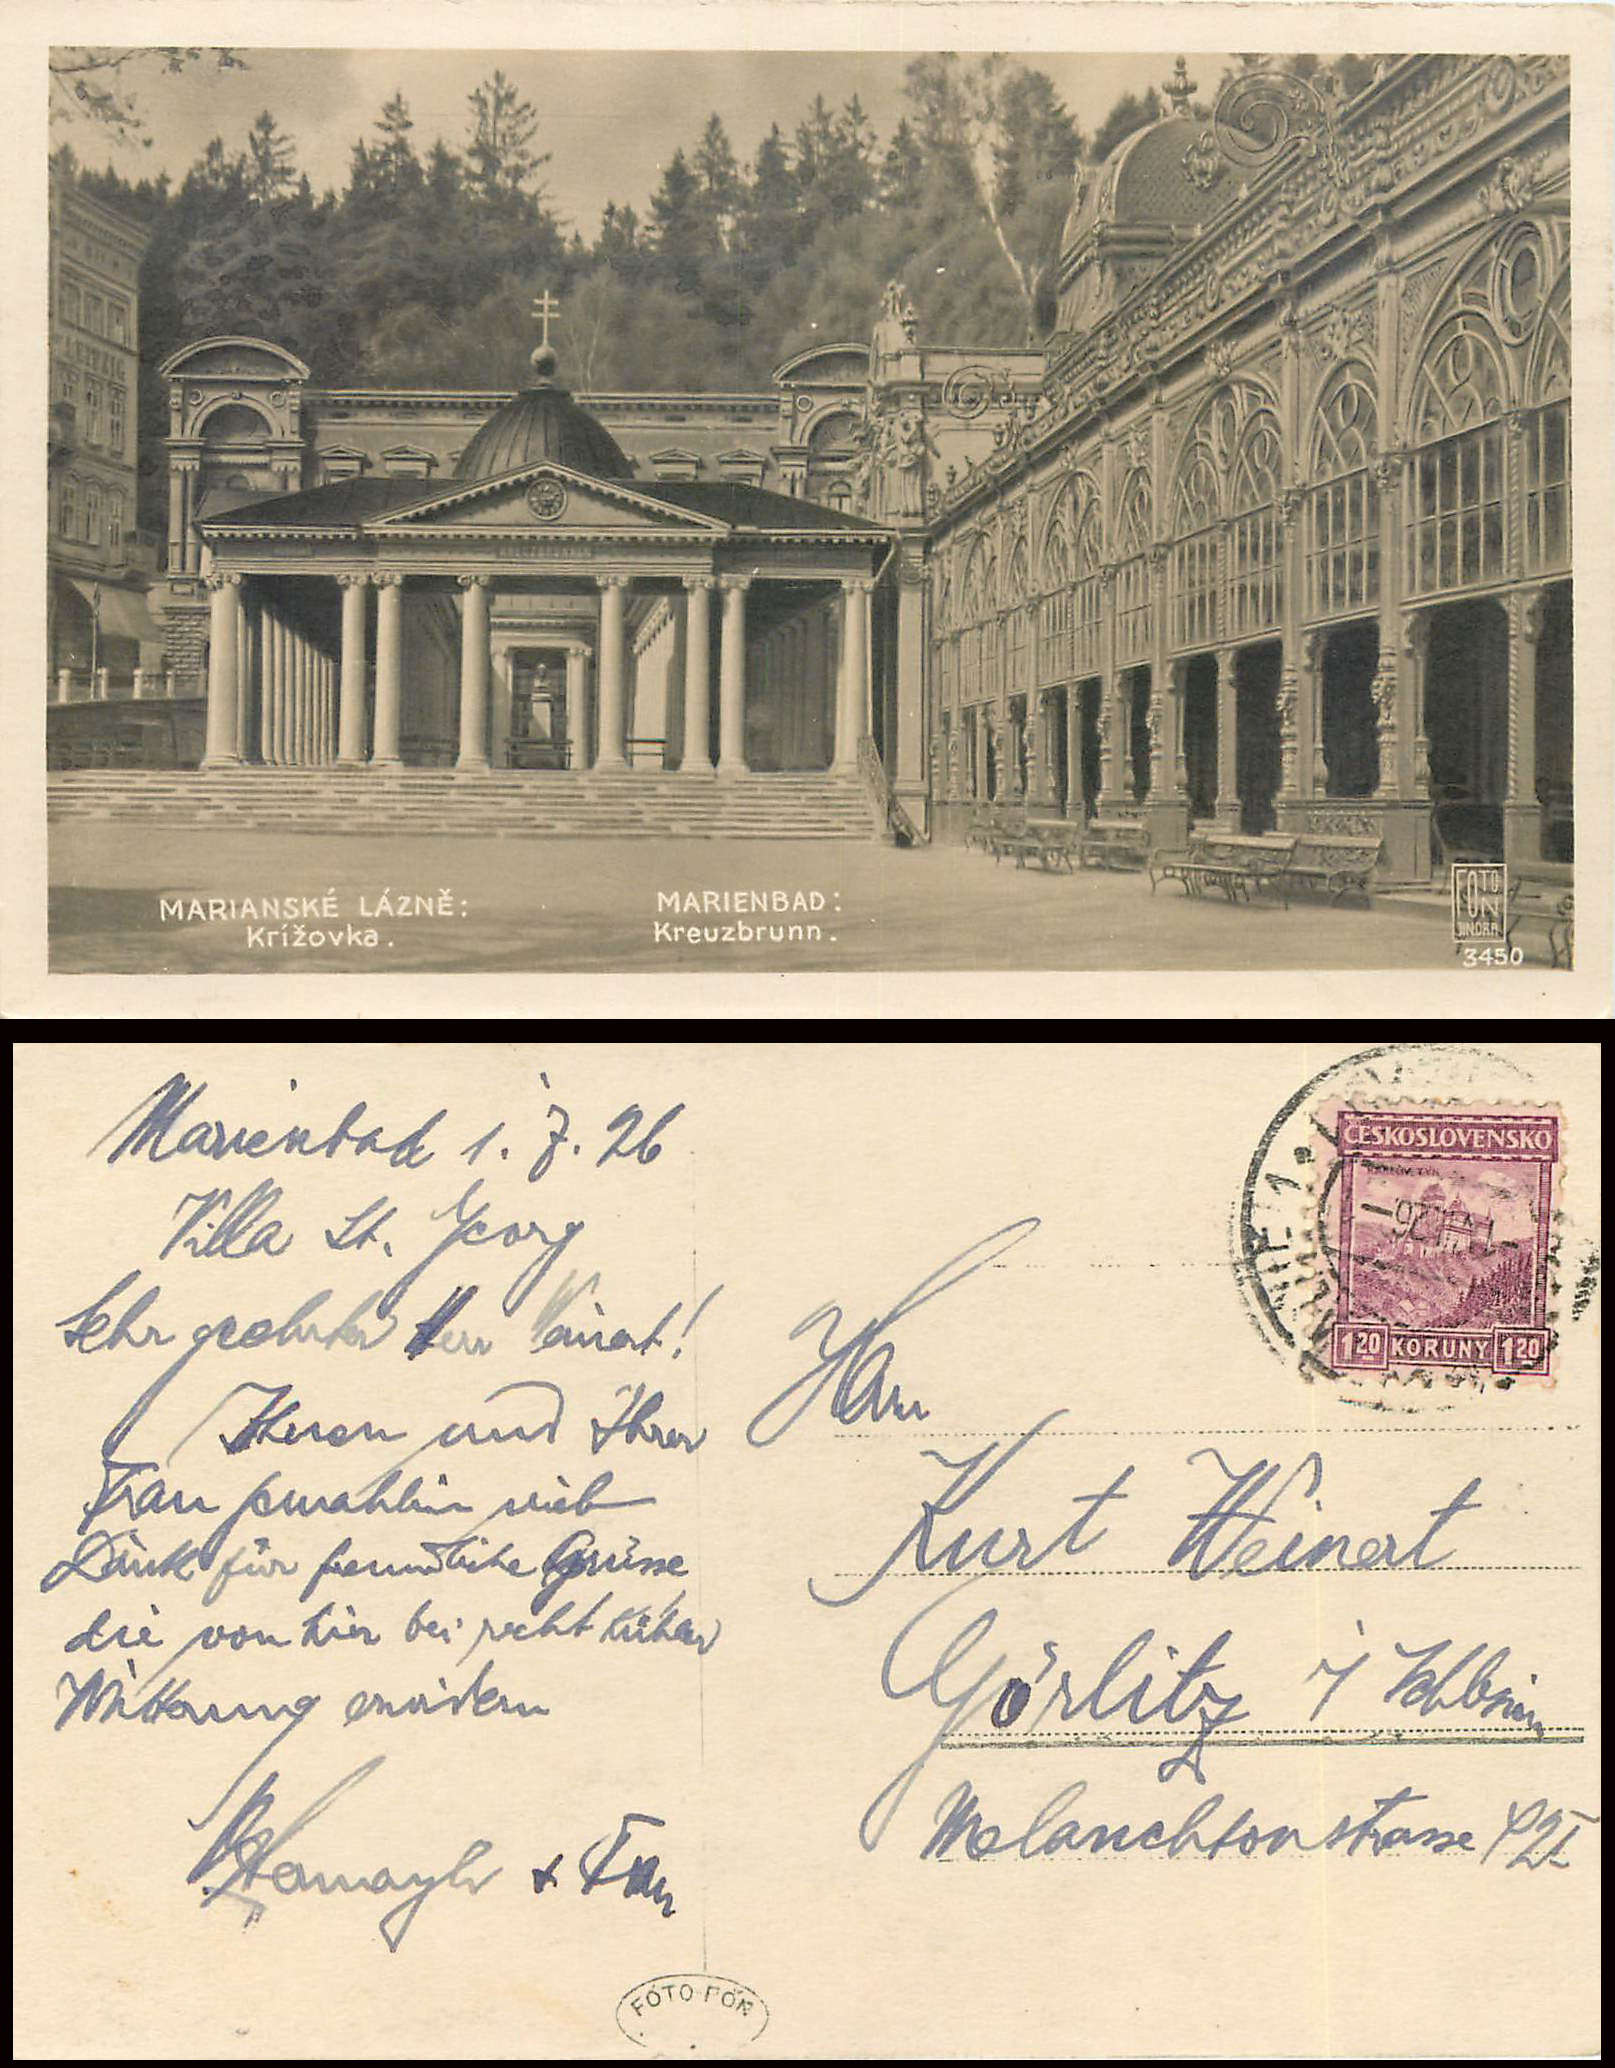 LEIPZIG
KREUZBRUNNEN
MARIANSKÉ LÁZNĚ:
Křížovka.
MARIENBAD:
Kreuzbrunn.
FOTO
FON
JINDRA
3450
Marienbad 1. 7. 26
Villa St. Georg
Sehr geehrter Herr Weinert!
Ihnen und Ihrer
Frau Gemahlin viel
Dank für freundliche Grüsse
die von hier bei recht kühler
Witterung erwidern
+ Frau
ČESKOSLOVENSKO
1 20 KORUNY 1 20
Herrn
Kurt Weinert
Görlitz i/ Schlesien
Melanchtonstrasse
FOTO-FON